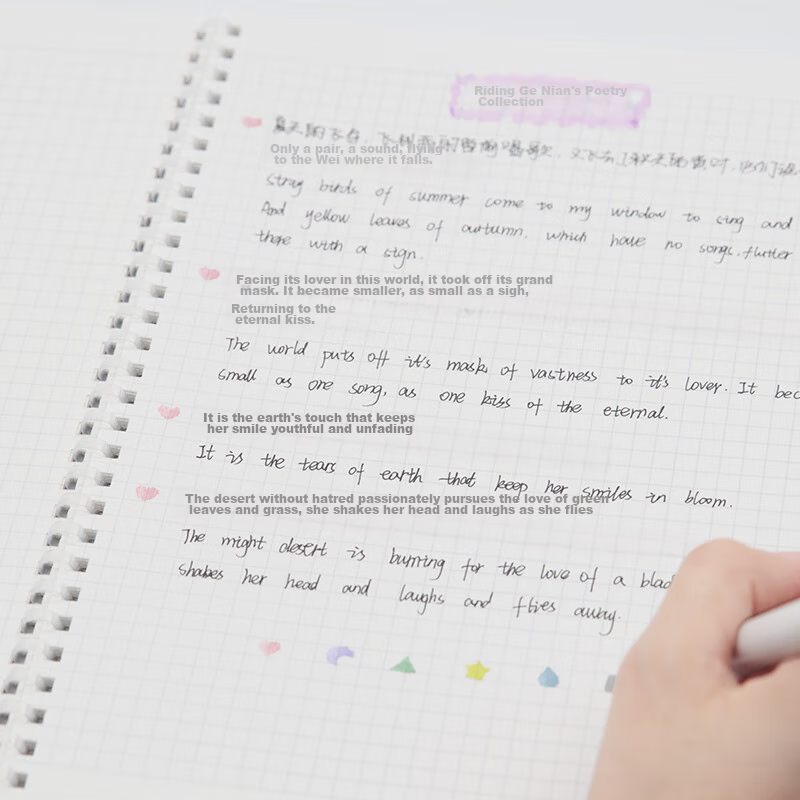 Riding Ge Nian's Poetry
Collection
Only a pair, a sound, flying
to the Wei where it falls.
stray birds of summer come to my window to sing and
And yellow leaves of autumn. which have no songs. flutter
there with a sign.
Facing its lover in this world, it took off its grand
mask. It became smaller, as small as a sigh,
Returning to the
eternal kiss.
The world puts off it's mask of vastness to it's lover. It bec
small as one song, as one kiss of the eternal.
It is the earth's touch that keeps
her smile youthful and unfading
It is the tears of earth that keep her smiles in bloom.
The desert without hatred passionately pursues the love of green
leaves and grass, she shakes her head and laughs as she flies
The might desert is burning for the love of a blad
shakes her head and laughs and flies away.